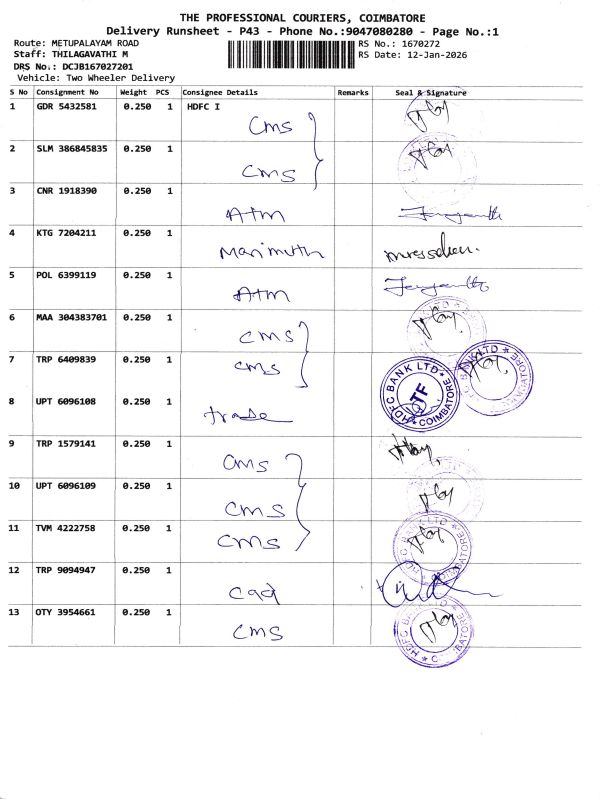 THE PROFESSIONAL COURIERS, COIMBATORE
Delivery Runsheet - P43 - Phone No.:9047080280 - Page No.:1
Route: METUPALAYAM ROAD
RS No.: 1670272
Staff: THILAGAVATHI M
RS Date: 12-Jan-2026
DRS No.: DCJB167027201
Vehicle: Two Wheeler Delivery
S No Consignment No Weight PCS Consignee Details Remarks Seal & Signature
1 GDR 5432581 0.250 1 HDFC I
cms
2 SLM 386845835 0.250 1
cms
3 CNR 1918390 0.250 1
Atm
4 KTG 7204211 0.250 1
Marimuth
5 POL 6399119 0.250 1
Atm
6 MAA 304383701 0.250 1
cms
7 TRP 6409839 0.250 1
cms
HDFC BANK LTD * COIMBATORE *
TF
8 UPT 6096108 0.250 1
trade
9 TRP 1579141 0.250 1
cms
10 UPT 6096109 0.250 1
cms
11 TVM 4222758 0.250 1
cms
12 TRP 9094947 0.250 1
13 OTY 3954661 0.250 1
cms